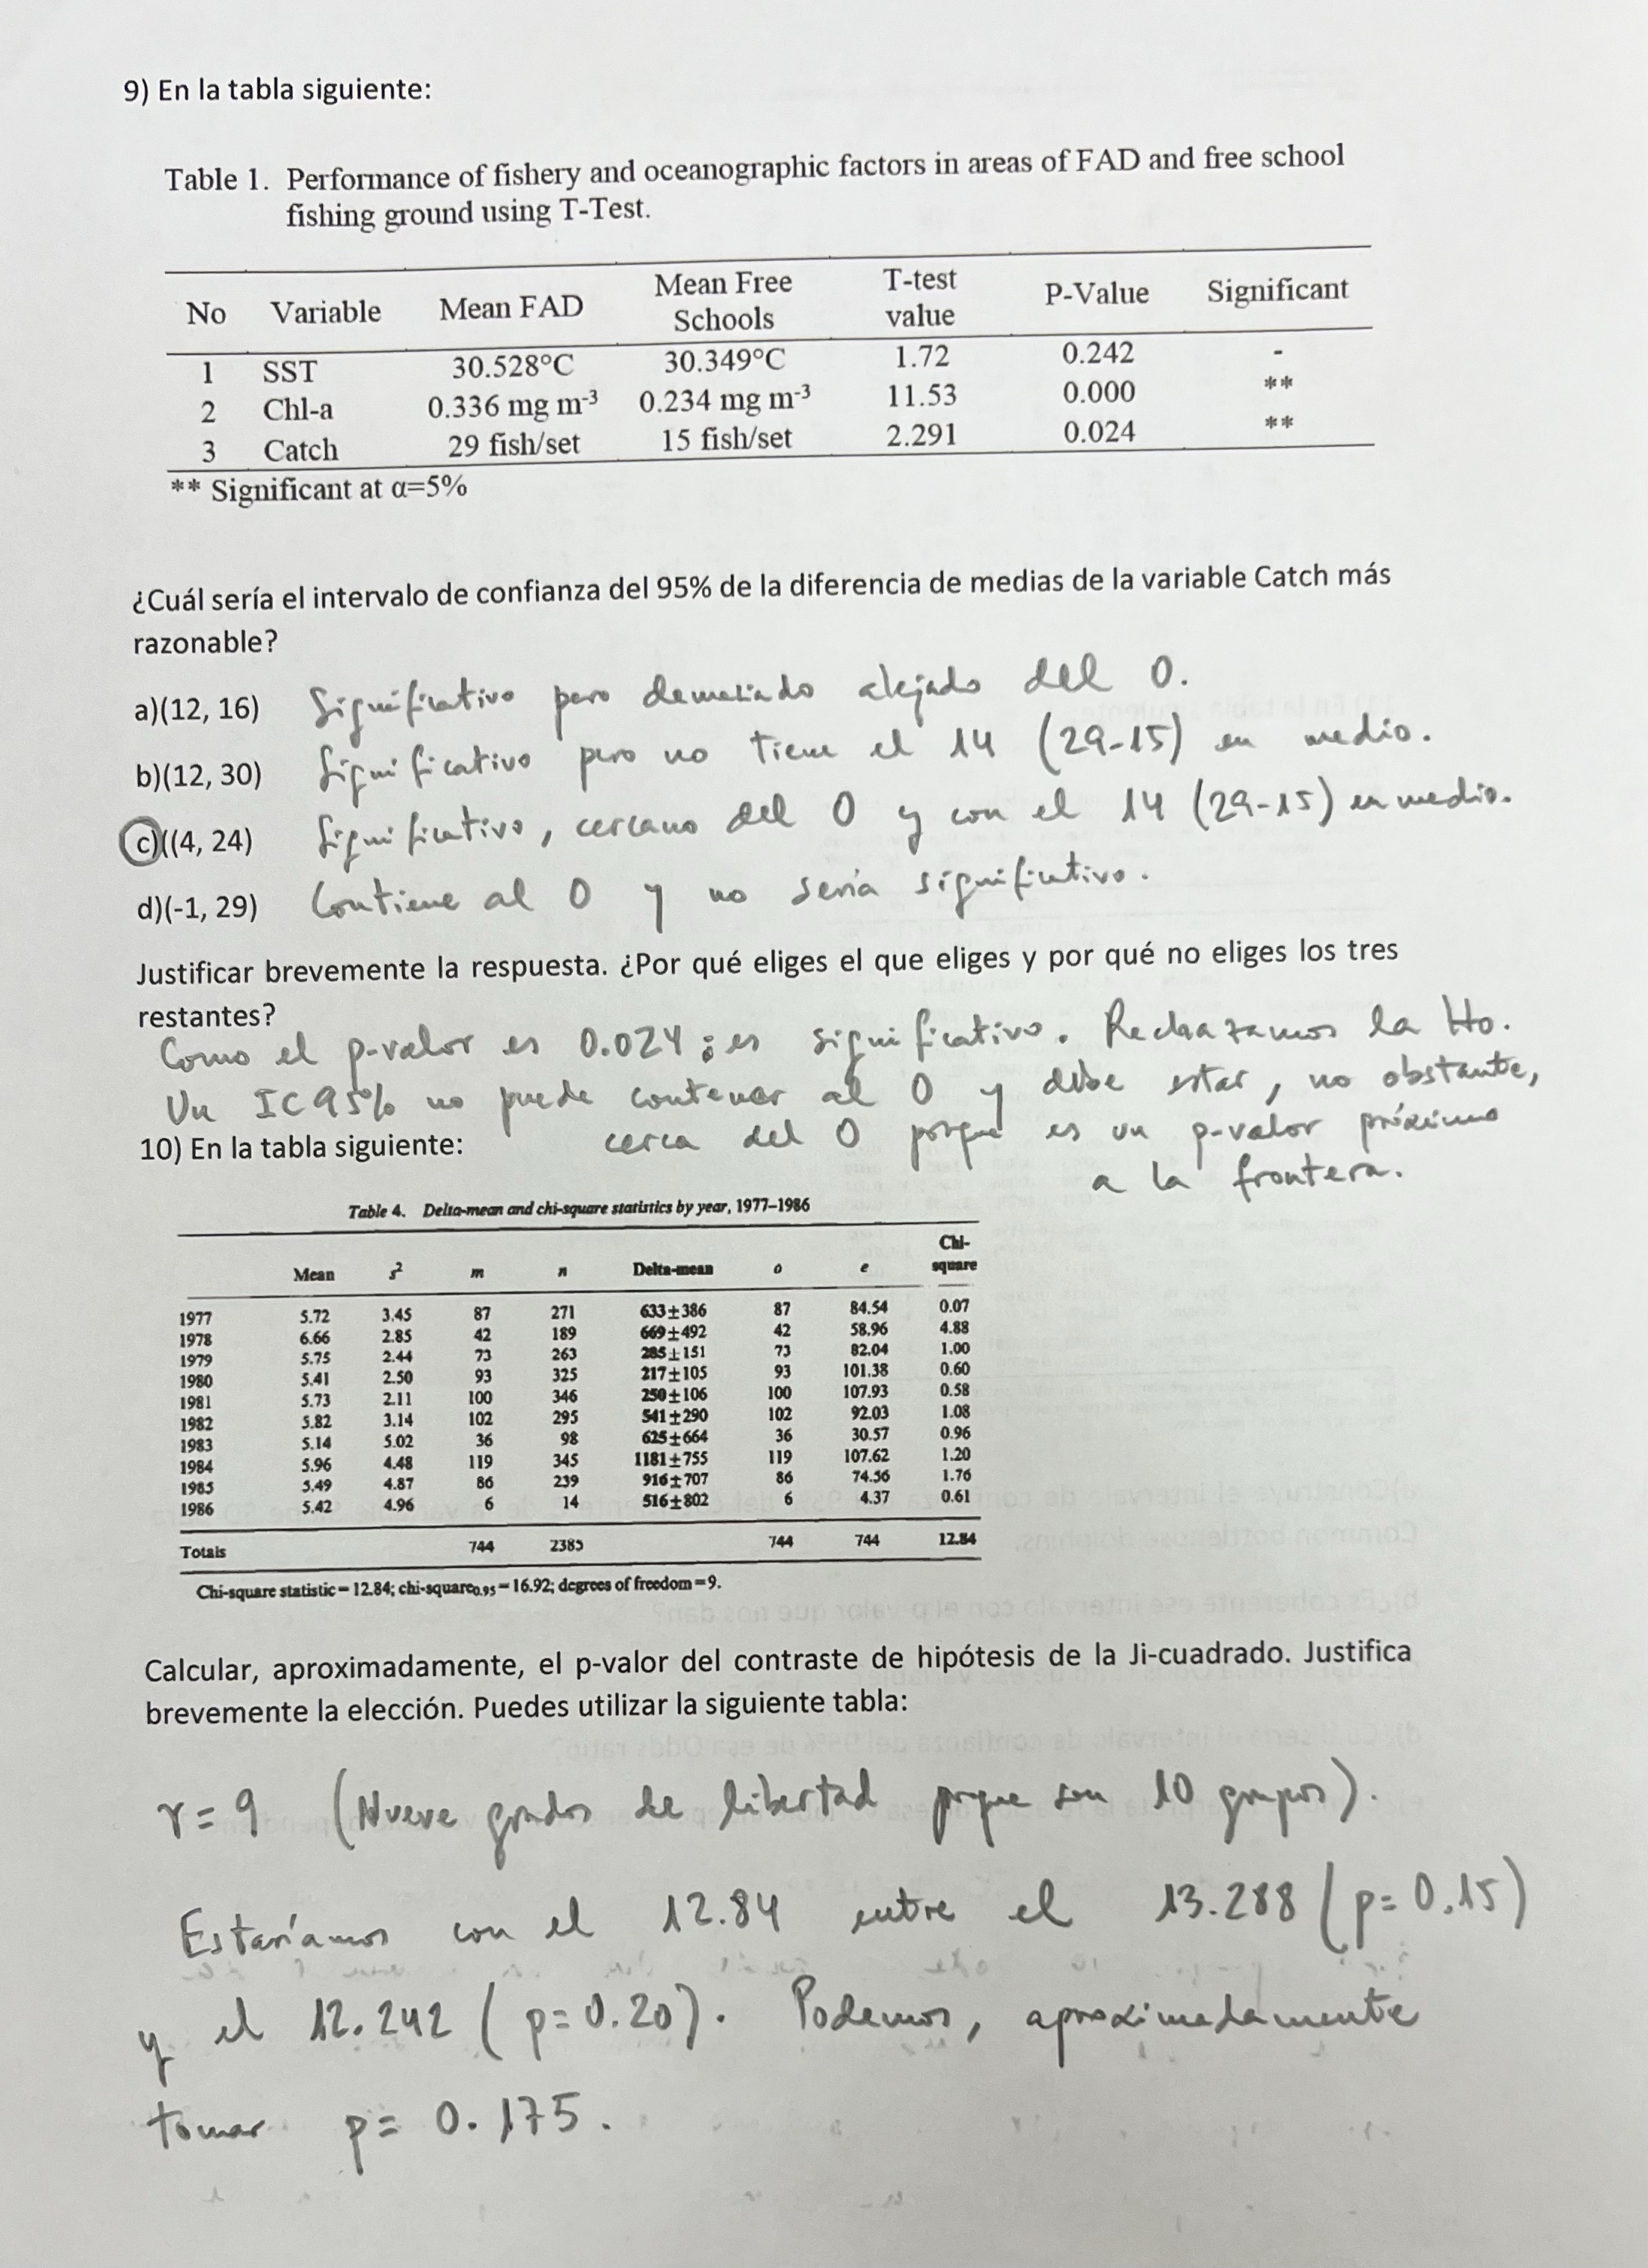 9) En la tabla siguiente:
Table 1. Performance of fishery and oceanographic factors in areas of FAD and free school
fishing ground using T-Test.
No Variable Mean FAD Mean Free Schools T-test value P-Value Significant
1 SST 30.528°C 30.349°C 1.72 0.242 -
2 Chl-a 0.336 mg m-3 0.234 mg m-3 11.53 0.000 **
3 Catch 29 fish/set 15 fish/set 2.291 0.024 **
** Significant at α=5%
¿Cuál sería el intervalo de confianza del 95% de la diferencia de medias de la variable Catch más
razonable?
a)(12, 16) Significativo pero demasiado alejado del 0.
b)(12, 30) Significativo pero no tiene el 14 (29-15) en medio.
c)((4, 24) Significativo, cercano del 0 y con el 14 (29-15) en medio.
d)(-1, 29) Contiene al 0 y no sería significativo.
Justificar brevemente la respuesta. ¿Por qué eliges el que eliges y por qué no eliges los tres
restantes?
Como el p-valor es 0.024; es significativo. Rechazamos la Ho.
Un IC95% no puede contener al 0 y debe estar, no obstante,
cerca del 0 porque es un p-valor próximo
a la frontera.
10) En la tabla siguiente:
Table 4. Delta-mean and chi-square statistics by year, 1977–1986
Mean s² m n Delta-mean o e Chi-square
1977 5.72 3.45 87 271 633±386 87 84.54 0.07
1978 6.66 2.85 42 189 669±492 42 58.96 4.88
1979 5.75 2.44 73 263 285±151 73 82.04 1.00
1980 5.41 2.50 93 325 217±105 93 101.38 0.60
1981 5.73 2.11 100 346 250±106 100 107.93 0.58
1982 5.82 3.14 102 295 541±290 102 92.03 1.08
1983 5.14 5.02 36 98 625±664 36 30.57 0.96
1984 5.96 4.48 119 345 1181±755 119 107.62 1.20
1985 5.49 4.87 86 239 916±707 86 74.56 1.76
1986 5.42 4.96 6 14 516±802 6 4.37 0.61
Totals 744 2385 744 744 12.84
Chi-square statistic = 12.84; chi-square0.95 = 16.92; degrees of freedom = 9.
Calcular, aproximadamente, el p-valor del contraste de hipótesis de la Ji-cuadrado. Justifica
brevemente la elección. Puedes utilizar la siguiente tabla:
r = 9 (Nueve grados de libertad porque son 10 grupos).
Estaríamos con el 12.84 entre el 13.288 (p=0.15)
y el 12.242 (p=0.20). Podemos, aproximadamente
tomar p= 0.175.